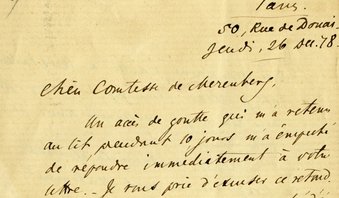 Paris.
50, Rue de Douai.
Jeudi, 26 Dec. 78.
Chère Comtesse de Merenberg,
Un accès de goutte qui m'a retenu
au lit pendant 10 jours m'a empêché
de répondre immédiatement à votre
lettre. – Je vous prie d'excuser ce retard